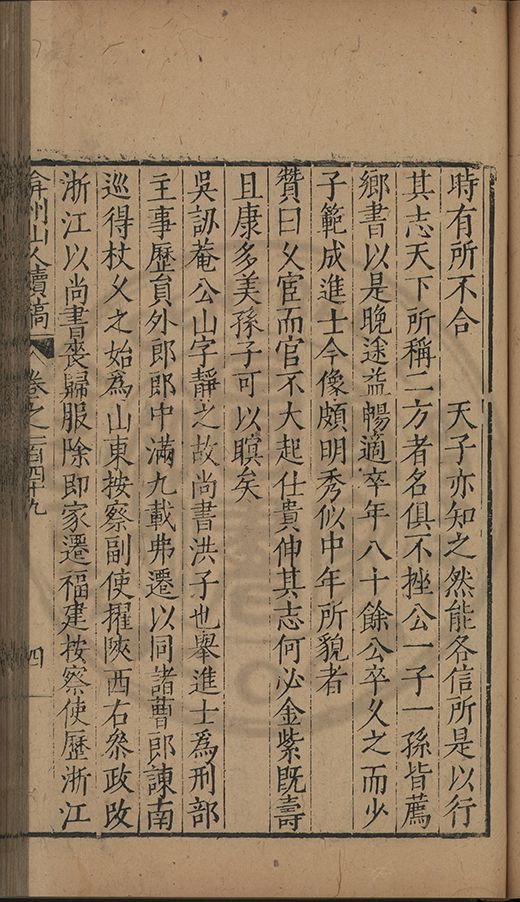 時有所不合　　天子亦知之然能各信所是以行
其志天下所稱二方者名俱不挫公一子一孫皆薦
鄉書以是晚途益暢適卒年八十餘公卒久之而少
子範成進士今像頗明秀似中年所貌者
贊曰久宦而官不大起仕貴伸其志何必金紫既壽
且康多美孫子可以瞑矣
吳訒菴公山字靜之故尚書洪子也舉進士為刑部
主事歷員外郎郎中滿九載弗遷以同諸曹郎諫南
巡得杖久之始為山東按察副使擢陝西右叅政改
浙江以尚書喪歸服除即家遷福建按察使歷浙江
弇州山人續稿　卷之一百四十九　四